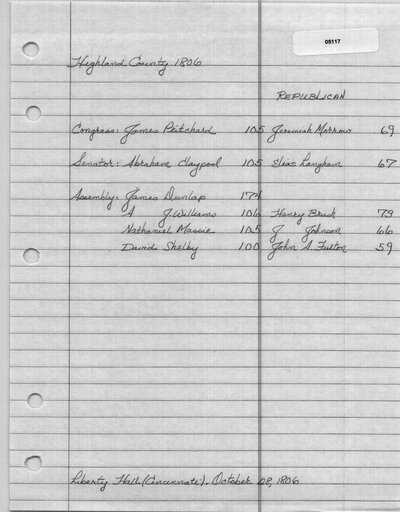 05117
Highland County 1806
REPUBLICAN
Congress: James Pritchard 105 Jeremiah Morrow 69
Senator: Abraham Claypool 105 Elias Langham 67
Assembly: James Dunlap 174
A J. Williams 106 Henry Brush 73
Nathaniel Massie 105 J Johnson 66
David Shelby 100 John A. Fulton 59
Liberty Hall (Cincinnati). October 28, 1806